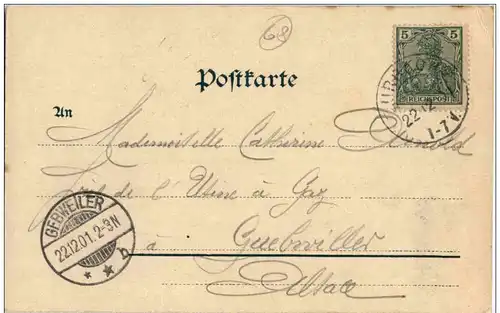 68
5 5
REICHSPOST
22.12
1-7V.
Postkarte
An
Mademoiselle Catherine Arnold
de l'Usine à Gaz
à Guebwiller
Alsace
GEBWEILER
22.12.01. 2-3N
* * b